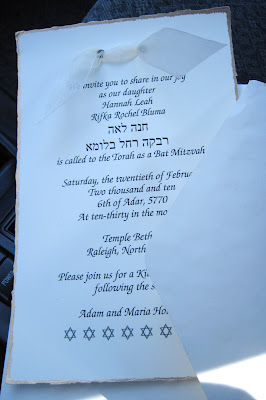 invite you to share in our joy
as our daughter
Hannah Leah
Rifka Rochel Bluma
חנה לאה
רבקה רחל בלומא
is called to the Torah as a Bat Mitzvah
Saturday, the twentieth of
Two thousand and ten
6th of Adar, 5770
At ten-thirty in the
Temple Beth
Raleigh, North
Please join us for a
following the
Adam and Maria